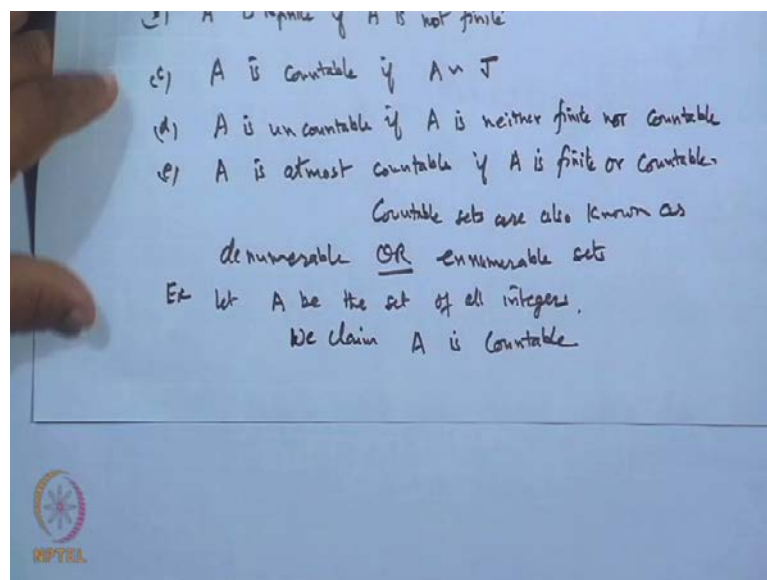 A is infinite if A is not finite
(c) A is countable if A ~ J
(d) A is uncountable if A is neither finite nor countable
(e) A is atmost countable if A is finite or countable.
Countable sets are also known as
denumerable OR ennumerable sets
Ex let A be the set of all integers.
We claim A is countable
NPTEL